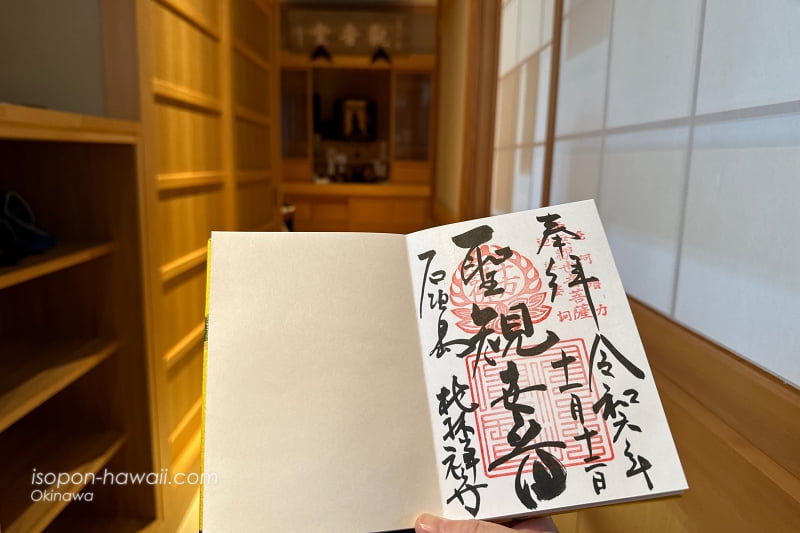 觀音堂
奉拝
令和六年
十一月十二日
聖観世音
石垣島
桃林禅寺
isopon-hawaii.com
Okinawa